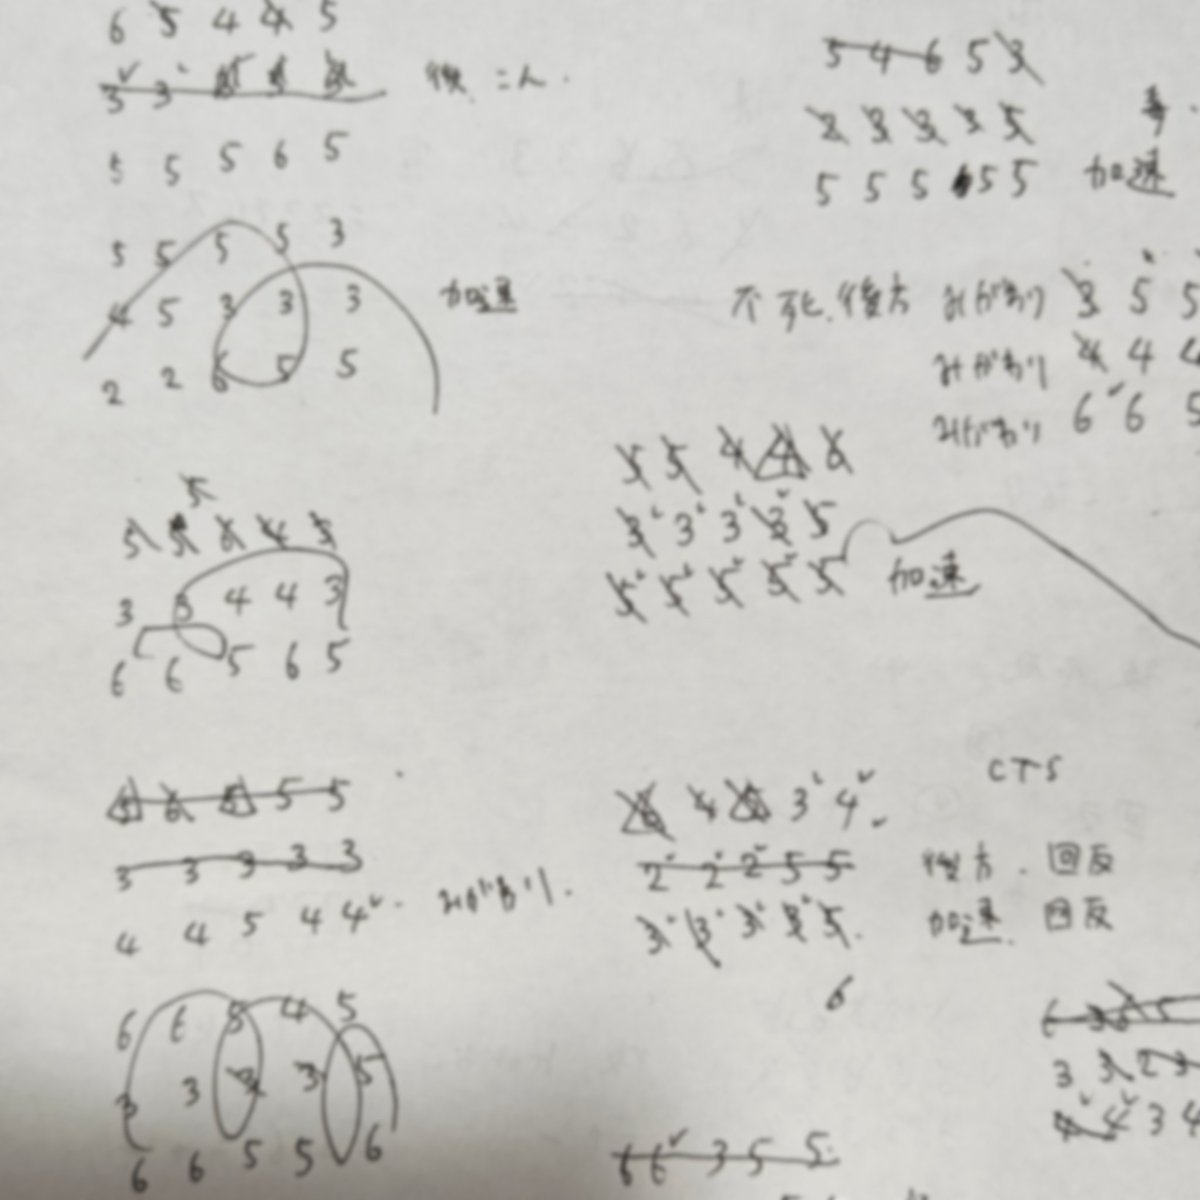 6 5 4 4 5
3 3
後 二人.
5 5 5 6 5
5 5 5 5 3
4 5 3 3 3
加速
2 2 6 5 5
5
5 5 6 4 5
3 3 4 4 3
6 6 5 6 5
5 6 5 5 5
3 3 3 3 3
4 4 5 4 4
みがわり.
6 6 5 4 5
3 3 3 3 5
6 6 5 5 6
5 4 6 5 3
2 3 3 3 5
5 5 5 5 5
加速
不死.後方 みがわり 3 5 5
みがわり 4 4 4
みがわり 6 6 5
5 5 4 4 6
3 3 3 3 5
5 5 5 5 5
加速
CTS
6 4 5 3 4
2 2 2 5 5
後方.回反
3 3 3 3 5.
加速. 回反
6
3 3 2 3
4 4 3 4
6 6 3 5 5